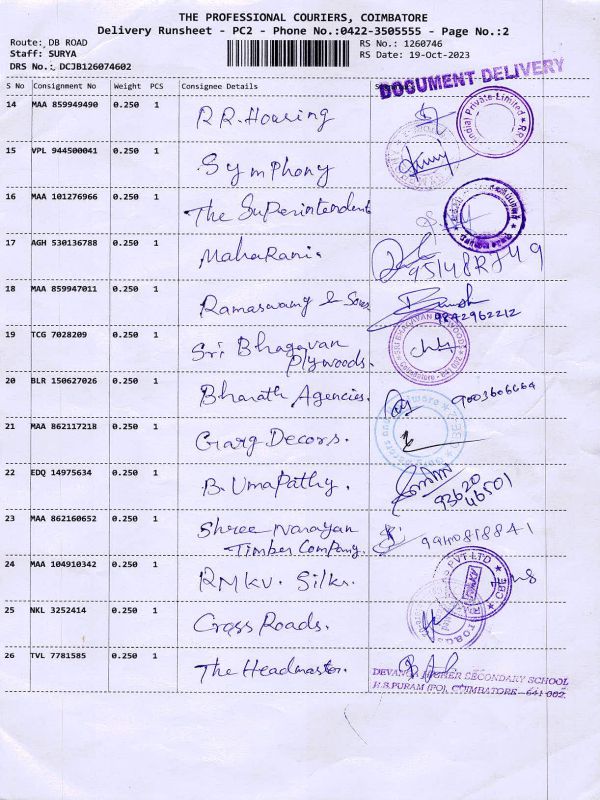 THE PROFESSIONAL COURIERS, COIMBATORE
Delivery Runsheet - PC2 - Phone No.:0422-3505555 - Page No.:2
Route: DB ROAD
RS No.: 1260746
Staff: SURYA
RS Date: 19-Oct-2023
DRS No.: DCJB126074602
DOCUMENT DELIVERY
S No Consignment No Weight PCS Consignee Details
14 MAA 859949490 0.250 1 R.R. Housing
15 VPL 944500041 0.250 1 Symphony
16 MAA 101276966 0.250 1 The Superintendent
17 AGH 530136788 0.250 1 Maharani.
18 MAA 859947011 0.250 1 Ramaswamy & Sons
9842962212
19 TCG 7028209 0.250 1 Sri Bhagavan
Plywoods.
20 BLR 150627026 0.250 1 Bharath Agencies.
9003606664
21 MAA 862117218 0.250 1 Garg Decors.
22 EDQ 14975634 0.250 1 B. Umapathy.
93620
46501
23 MAA 862160652 0.250 1 Shree Narayan
Timber Company.
9940818841
24 MAA 104910342 0.250 1 RMKV. Silks.
25 NKL 3252414 0.250 1 Cross Roads.
26 TVL 7781585 0.250 1 The Headmaster.
DEVANGA HIGHER SECONDARY SCHOOL
R.S.PURAM (PO), COIMBATORE-641 002.